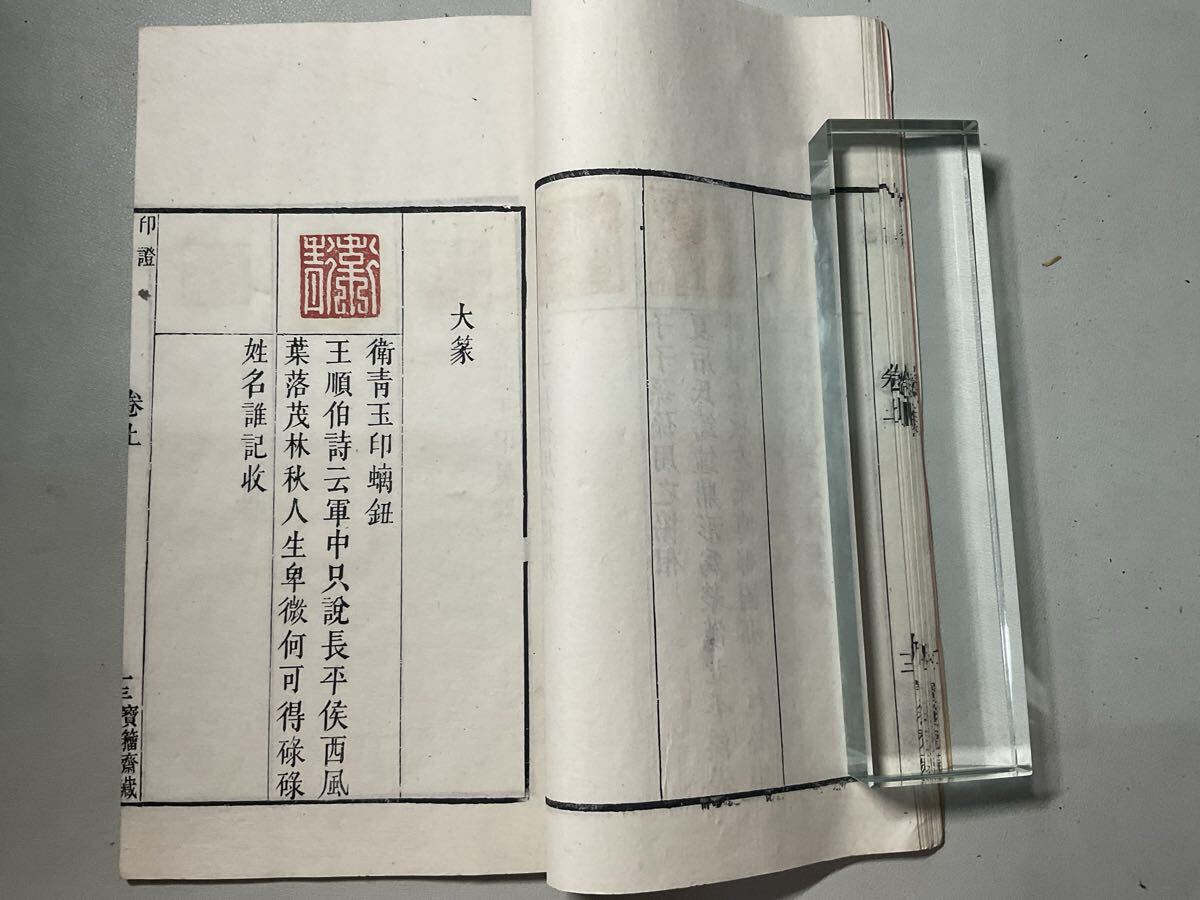 大篆
衛青玉印螭鈕
王順伯詩云軍中只說長平侯西風
葉落茂林秋人生卑微何可得碌碌
姓名誰記收
衛青
印證
卷上
三
寶籀齋藏